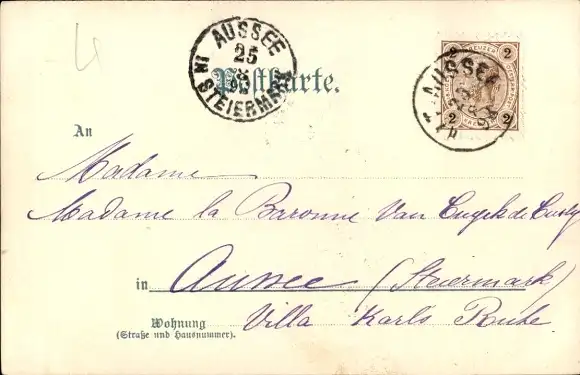 AUSSEE
25
IN STEIERMARK
Postkarte.
2 KREUZER 2
AUSSEE
2 2
An
Madame
Madame la Baronne Van
in Aussee (Steiermark)
Villa Karls Ruhe
Wohnung
(Straße und Hausnummer).